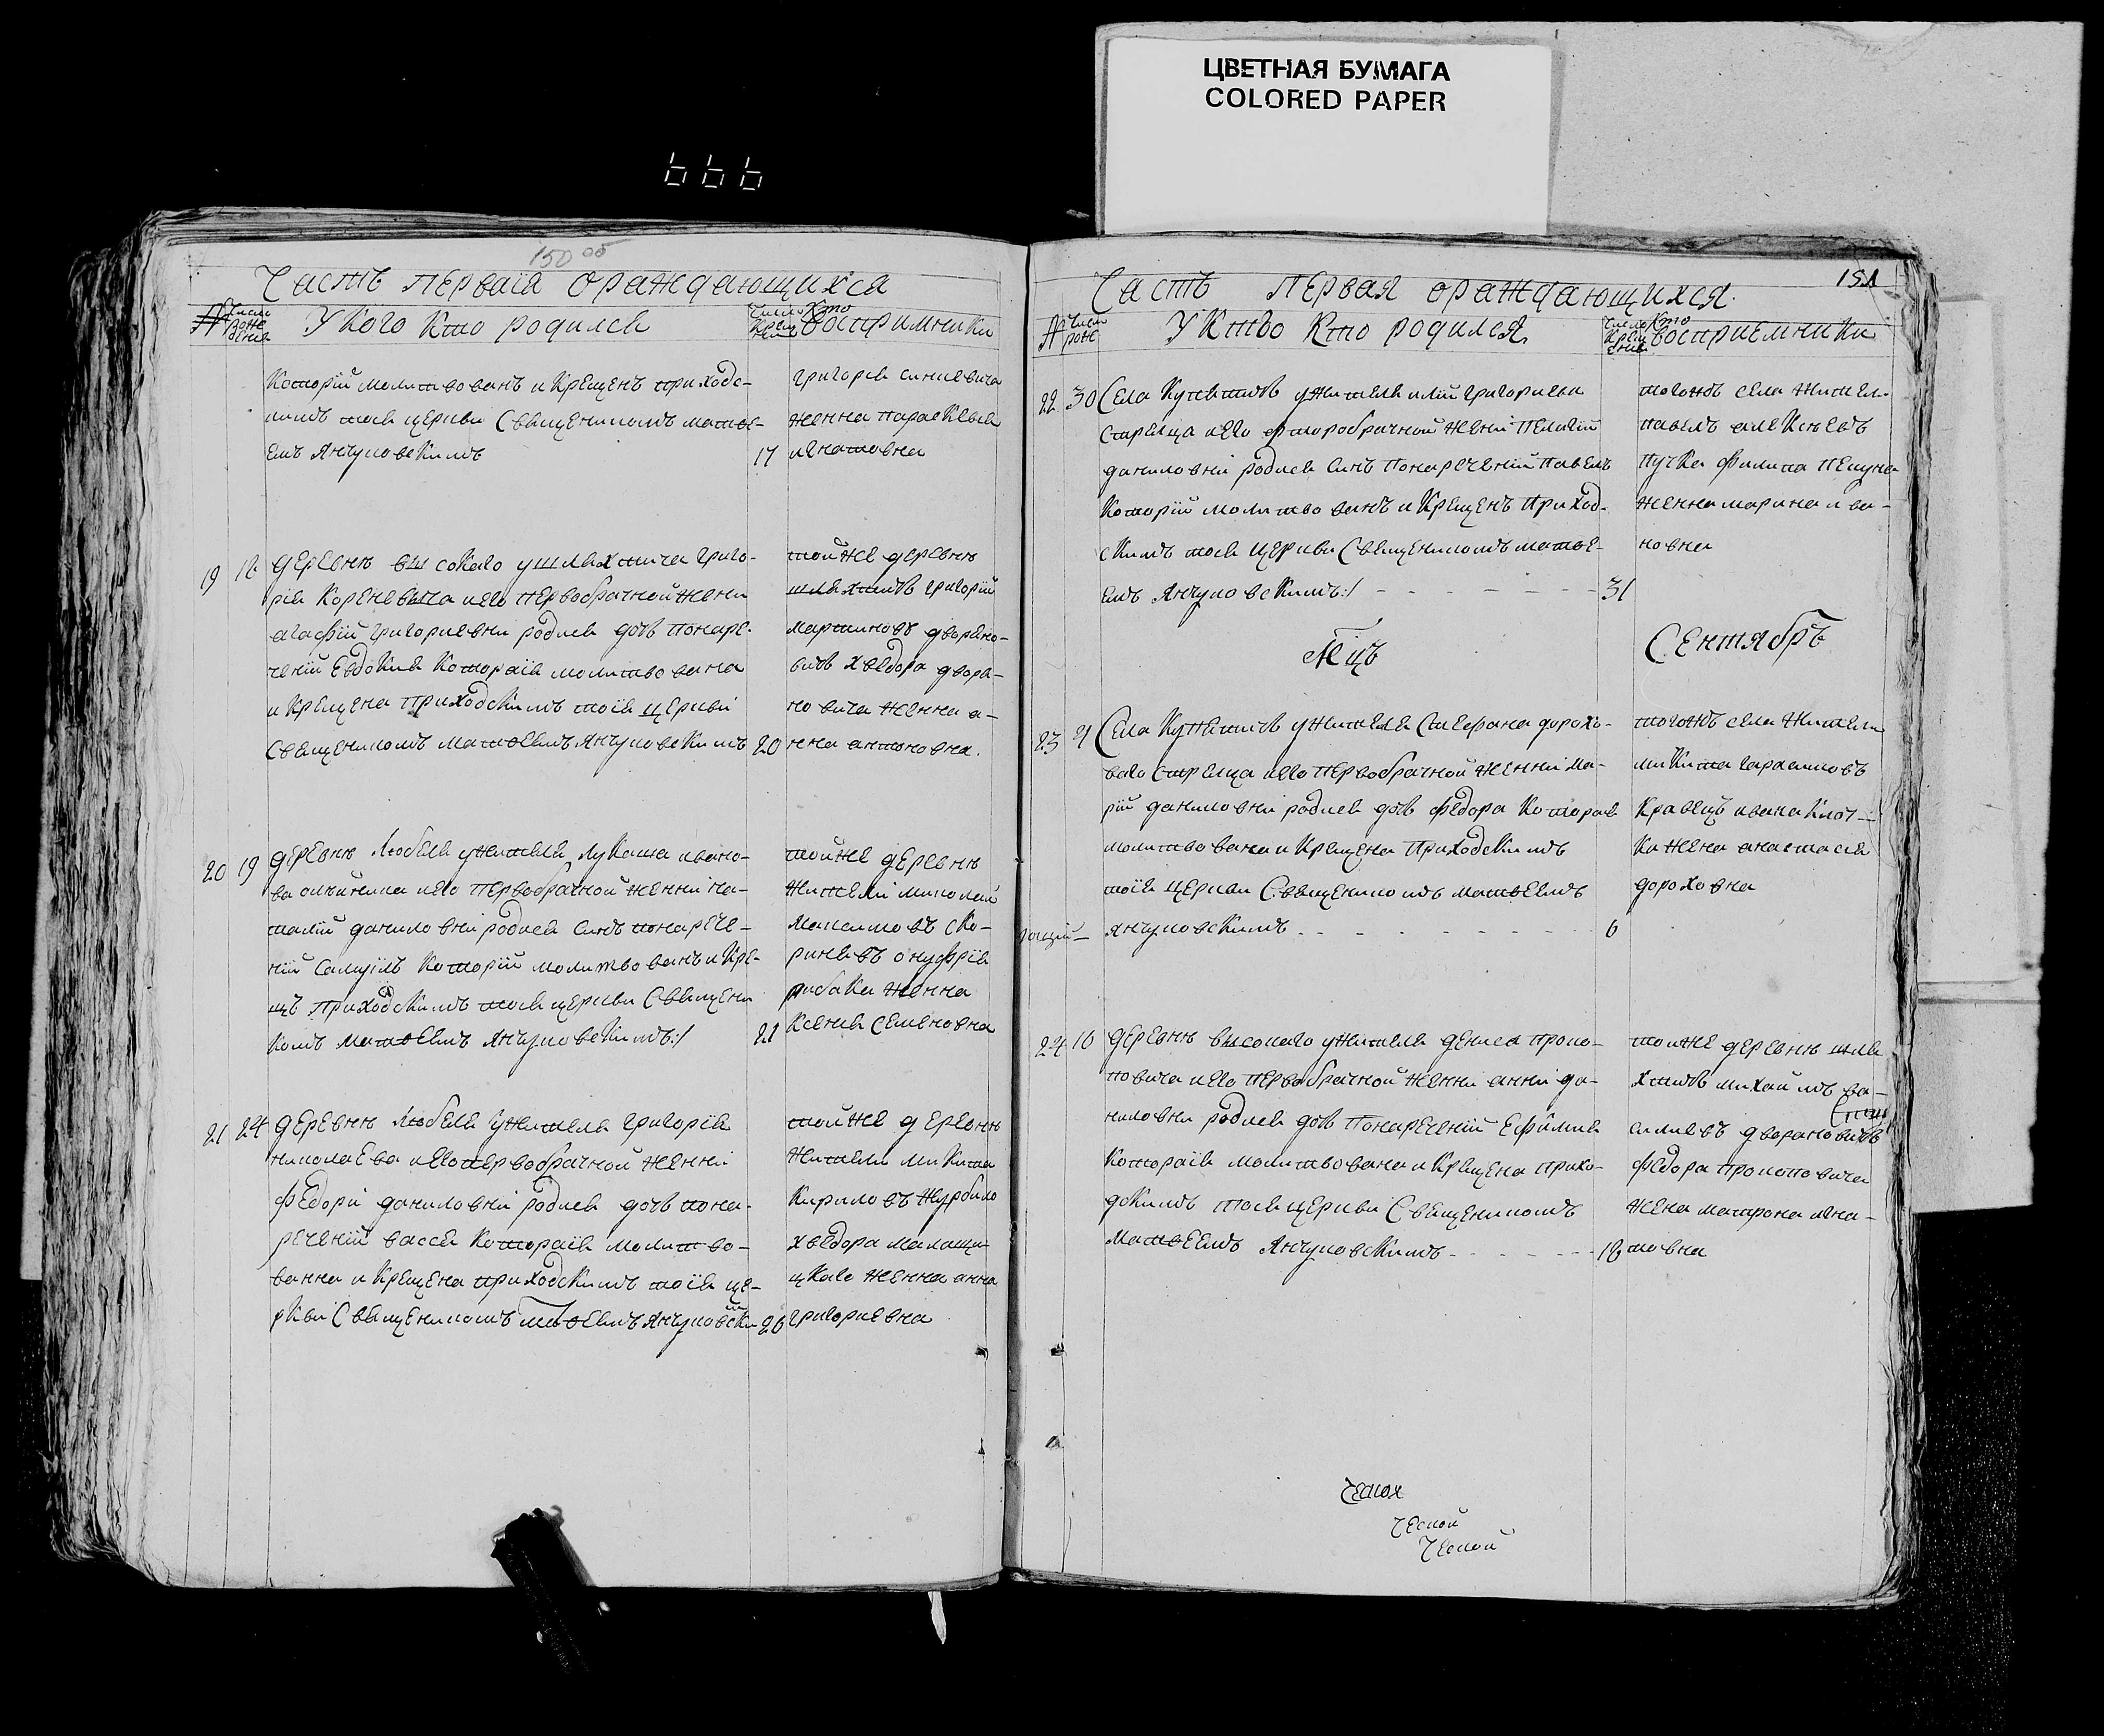 ЦВЕТНАЯ БУМАГА
COLORED PAPER
666
150 об
Часть первая ораждающихся
№
Число роже
У кого кто родился
Число крещ
Кто восприимники
которій молитвованъ и крещенъ приходс-
кимъ тоея церкви священикомъ матѳе-
емъ Янчуковскимъ 17
григорія
женна параскевия
игнатовна
19 18 деревнѣ высокаго у шляхтича григо-
рія кореневыча и его первобрачной жени
агафій григориевни родися дочь понаре-
ченій Евдокия котораія молитвована
и крещена приходскимъ тоія церкві
священикомъ матѳеемъ Янчуковскимъ 20
той же деревнѣ
шляхтичъ григорій
мартиновъ дворано-
вичъ хведора двора-
новича женна а-
нна антоновна.
20 19 деревнѣ Любеля у жителя Лукаша ивано-
ва олийника и его первобрачной женни на-
талій даниловні родися синъ понарече-
ній Самуілъ которій молитвованъ и кре-
щъ приходскимъ тоея церкви священи
комъ матѳеемъ Янчуковскимъ:/ 21
той же деревнѣ
жителі миколай
Максимовъ ско-
риневъ онуфрія
рибака женна
Ксения Семеновна
21 24 деревнѣ Любеля у жителя григорія
николаева и его первобрачной женні
федорі даниловні родися дочь пона-
реченій васся котораія молитво-
ванна и крещена приходскимъ тоія це-
ркви священикомъ матѳеемъ Янчуковски 26
той же деревнѣ
жители микита
Кириловъ
хведора
женна анна
григориевна
151
Часть первая ораждающихся.
№
Число рож
У кого кто родился
Число креще ния
Кто восприемники
22 30 Села Купитовъ у жителя илій григориева
стрелца и его фторобрачной жені Пелагій
даниловні родися синъ понареченій павелъ
которій молитвованъ и крещенъ приход-
скимъ тоея церкви священикомъ матѳе-
емъ Янчуковскимъ:/ - - - - - - - 31
тогожъ села жители
павелъ алексеевъ
пучка филипа
женна марина ива-
новна
Мцъ Сентябръ
23 4 Села Купитовъ у жителя Стефана дорохо-
ваго стрелца и его первобрачной женні ма-
рій даниловні родися дочь федора которая
молитвована и крещена приходскимъ
тоія церкви священикомъ матѳеемъ
Янчуковскимъ - - - - - - 6
тогожъ села жители
микита гарасимовъ
Кравецъ ивана клоч-
ка жена анастасия
дороховна
24 16 деревнѣ высокаго у жителя дениса проко-
повича и его первобрачной женни анні да-
ниловни родися дочь понареченій Ефимия
котораія молитвована и крещена прихо-
дскимъ тоея церкви священикомъ
Матѳеемъ Янчуковскимъ - - - - - - 18
той же деревнѣ шля
хтичъ михайлъ ва-
силиевъ дворановичъ
федора прокоповича
жена матрона игна-
товна